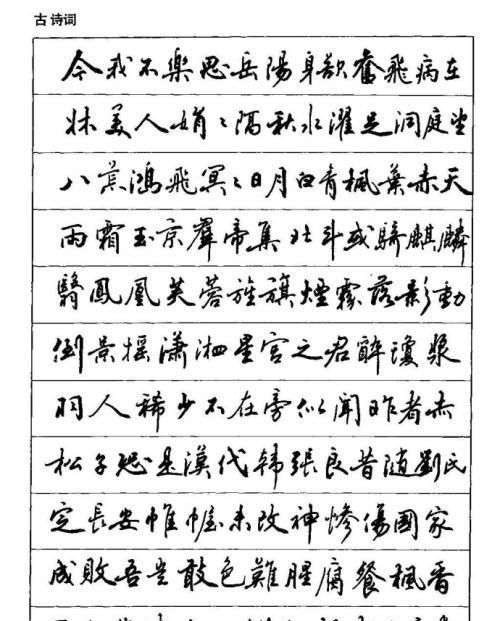 古诗词
今我不樂思岳陽身欲奮飛病在
牀美人娟〻隔秋水濯足洞庭望
八荒鴻飛冥〻日月白青楓葉赤天
雨霜玉京羣帝集北斗或騎麒麟
翳鳳凰芙蓉旌旗煙霧落影動
倒景摇瀟湘星宫之君醉瓊漿
羽人稀少不在旁似聞昨者赤
松子恐是漢代韓張良昔随劉氏
定長安帷幄未改神慘傷國家
成敗吾豈敢色難腥腐餐楓香